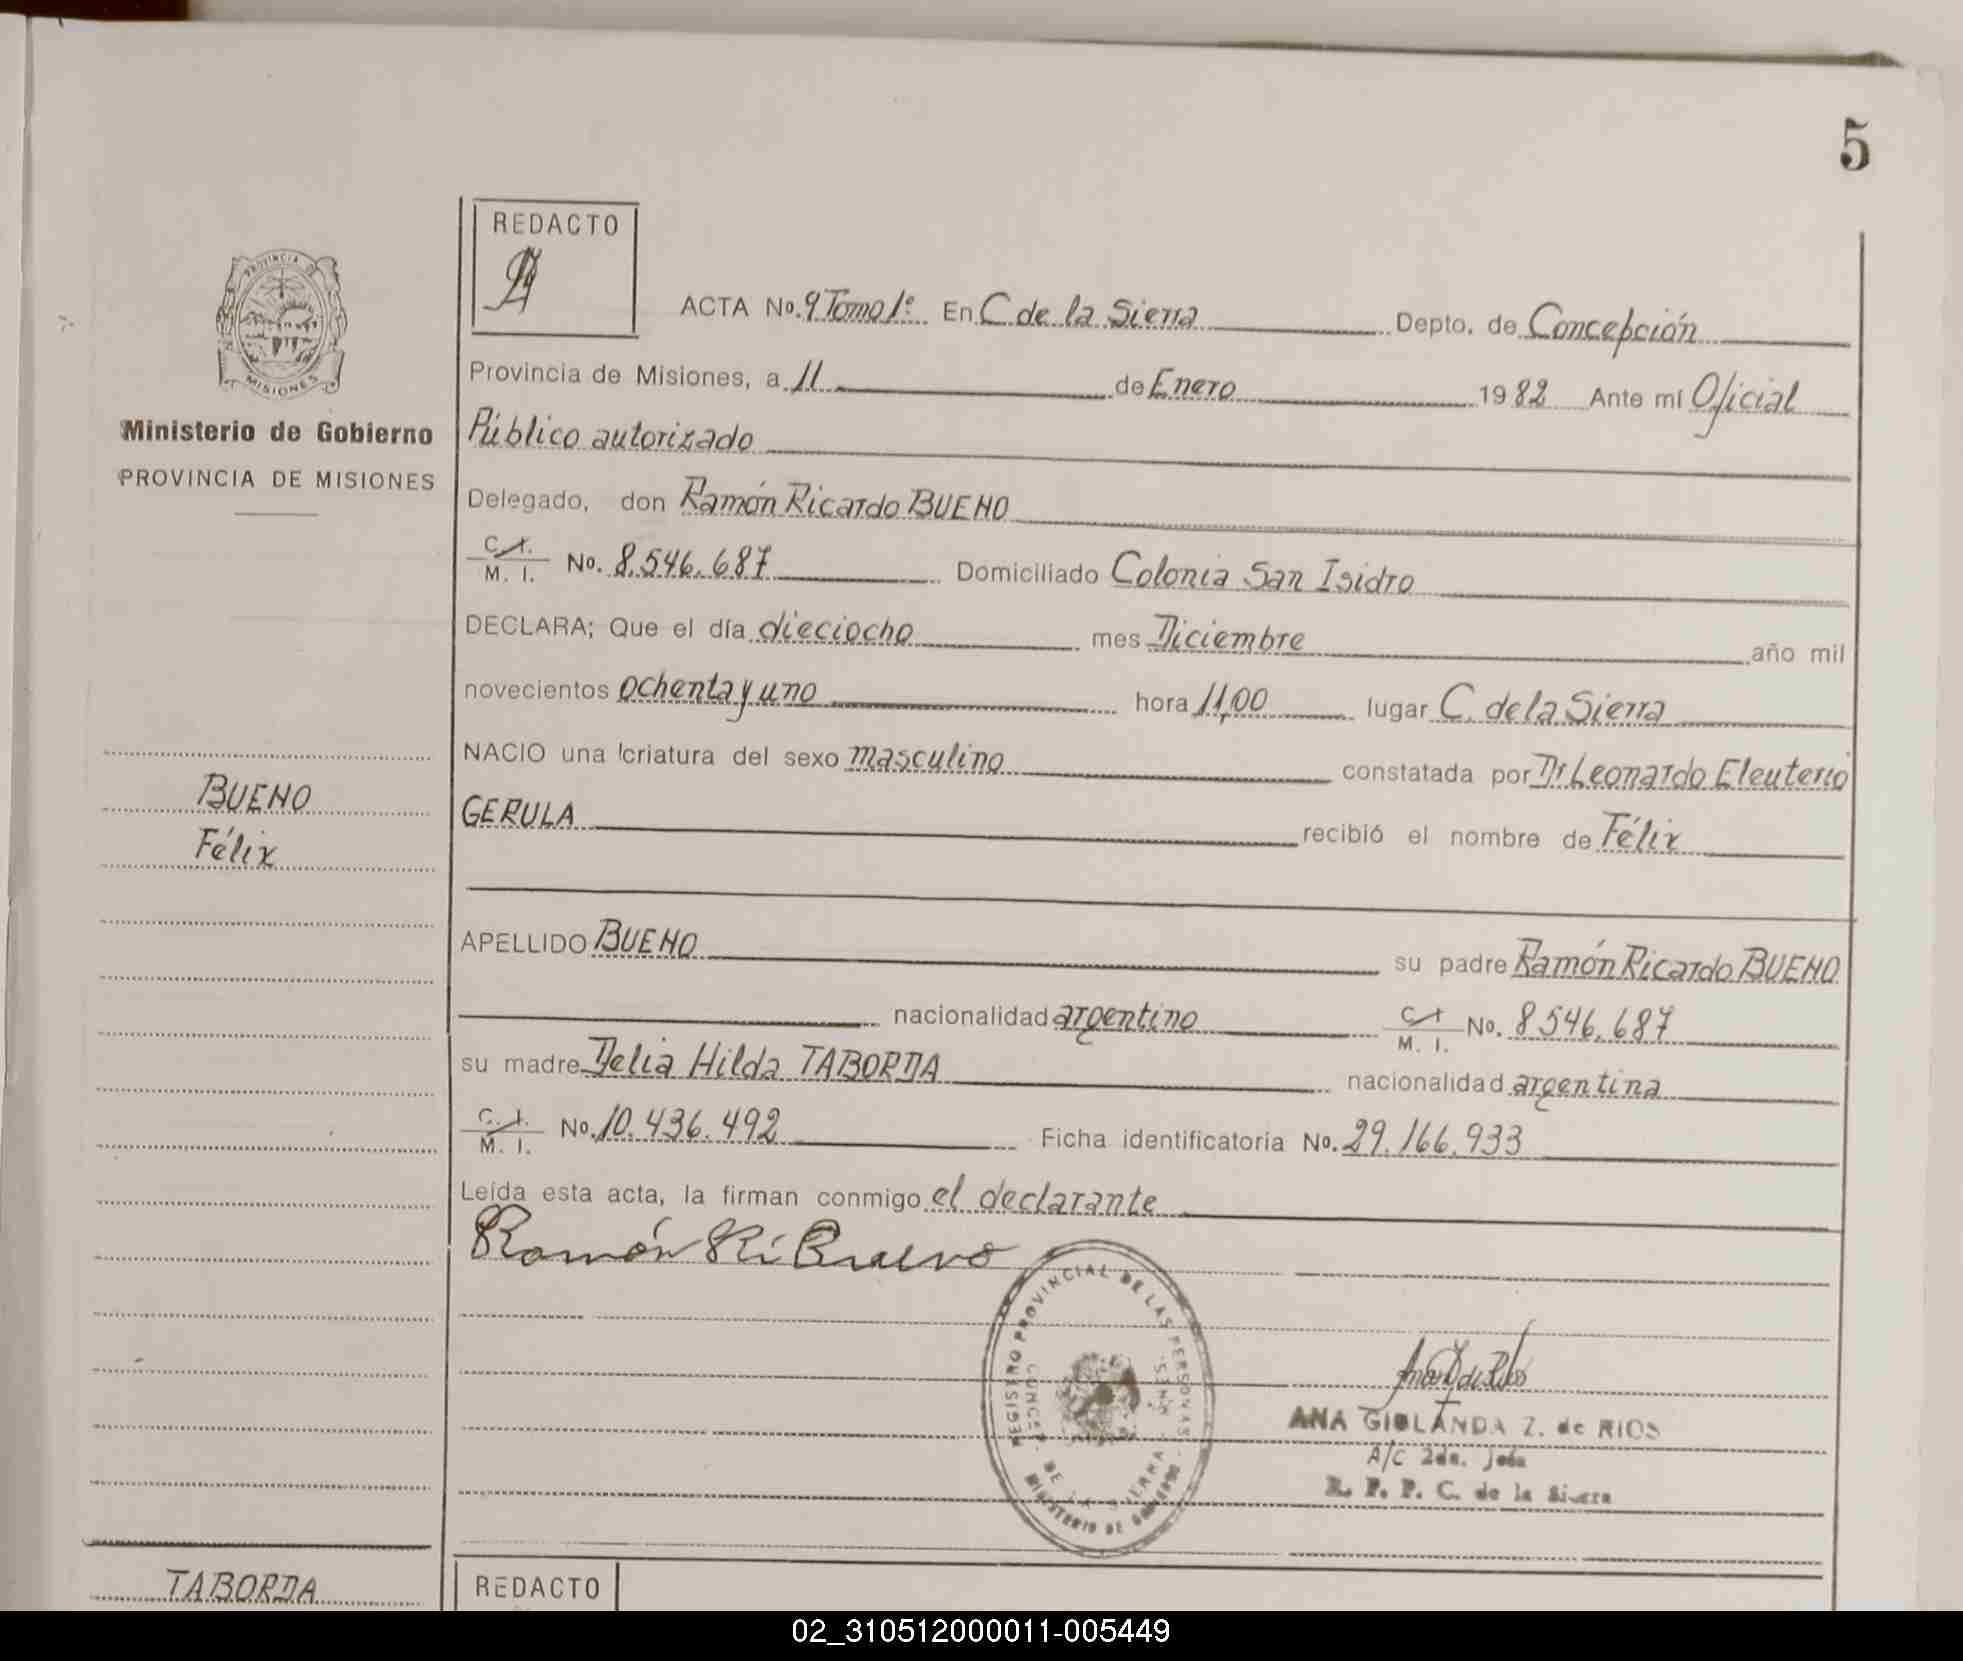 5
REDACTO
ACTA No. 9 Tomo 1º En C de la Sierra Depto. de Concepción
Provincia de Misiones, a 11 de Enero 1982 Ante mí Oficial
Ministerio de Gobierno
Público autorizado
PROVINCIA DE MISIONES
Delegado, don Ramón Ricardo BUENO
C. I.
M. I. No. 8.546.687 Domiciliado Colonia San Isidro
DECLARA; Que el día dieciocho mes Diciembre año mil
novecientos ochenta y uno hora 11,00 lugar C. de la Sierra
NACIO una criatura del sexo masculino constatada por Dr Leonardo Eleuterio
BUENO
GERULA recibió el nombre de Félix
Félix
APELLIDO BUENO su padre Ramón Ricardo BUENO
nacionalidad argentino C I
M. I. No. 8546.687
su madre Delia Hilda TABORDA nacionalidad argentina
C. I.
M. I. No. 10.436.492 Ficha identificatoria No. 29.166.933
Leída esta acta, la firman conmigo el declarante
Ramón Ri Bueno
REGISTRO PROVINCIAL DE LAS PERSONAS
CONCEP. DE LA SIERRA - MNES.
MINISTERIO DE GOBIERNO
PROVINCIA DE
MISIONES
ANA GIOLANDA Z. de RIOS
A/C 2da. Jefa
R. P. P. C. de la Sierra
TABORDA
REDACTO
02_310512000011-005449